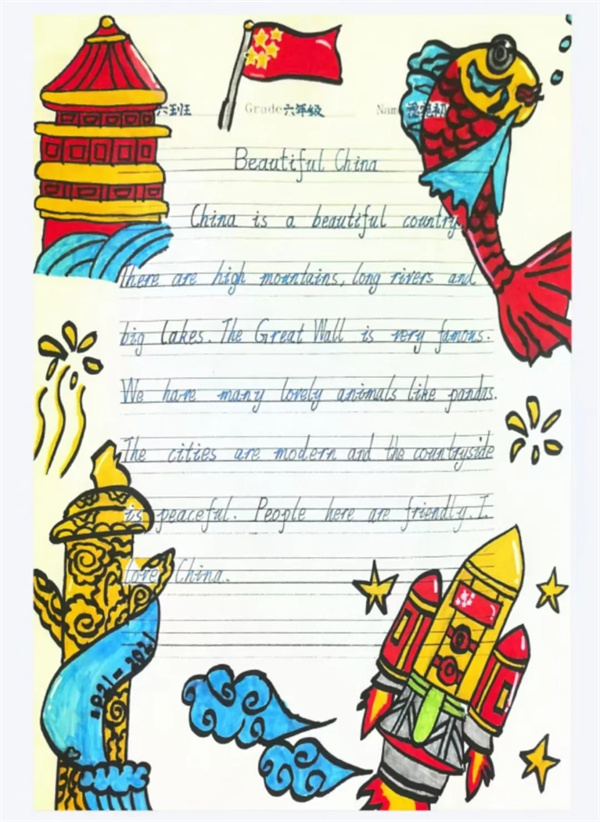 Grade六年级 Name
Beautiful China
China is a beautiful country.
There are high mountains, long rivers and
big lakes. The Great Wall is very famous.
We have many lovely animals like pandas.
The cities are modern and the countryside
is peaceful. People here are friendly. I
love China.